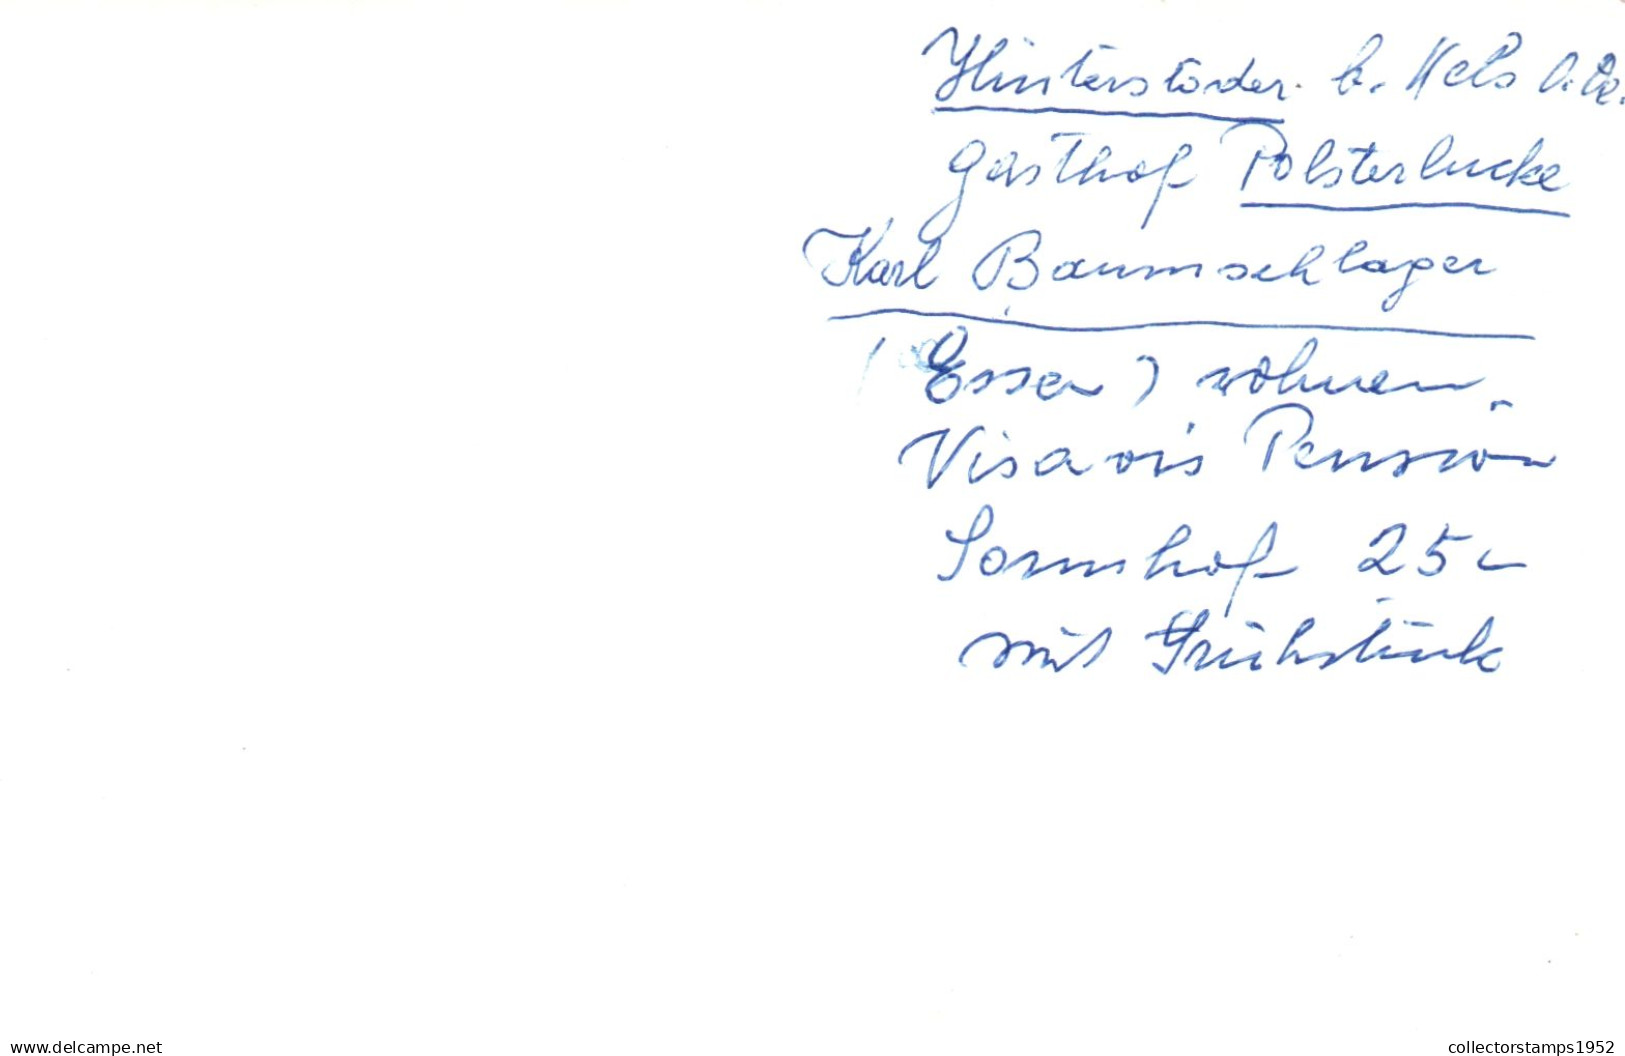 Hinterstoder b. Wels O.Ö.
Gasthof Polsterlucke
Karl Baumschlager
( Essen ) wohnen.
Visavis Pension
Sonnhof 25.-
mit Frühstück
www.delcampe.net
collectorstamps1952